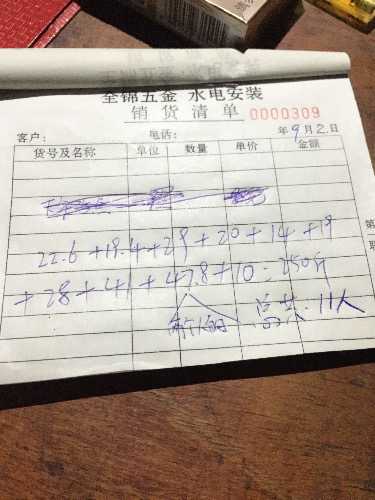 全锦五金 水电安装
销货清单 0000309
客户： 电话： 年9月2日
货号及名称 单位 数量 单价 金额
22.6+18.4+29+20+14+18
+28+41+47.8+10=250斤
两个人的 总共:11人
第
联